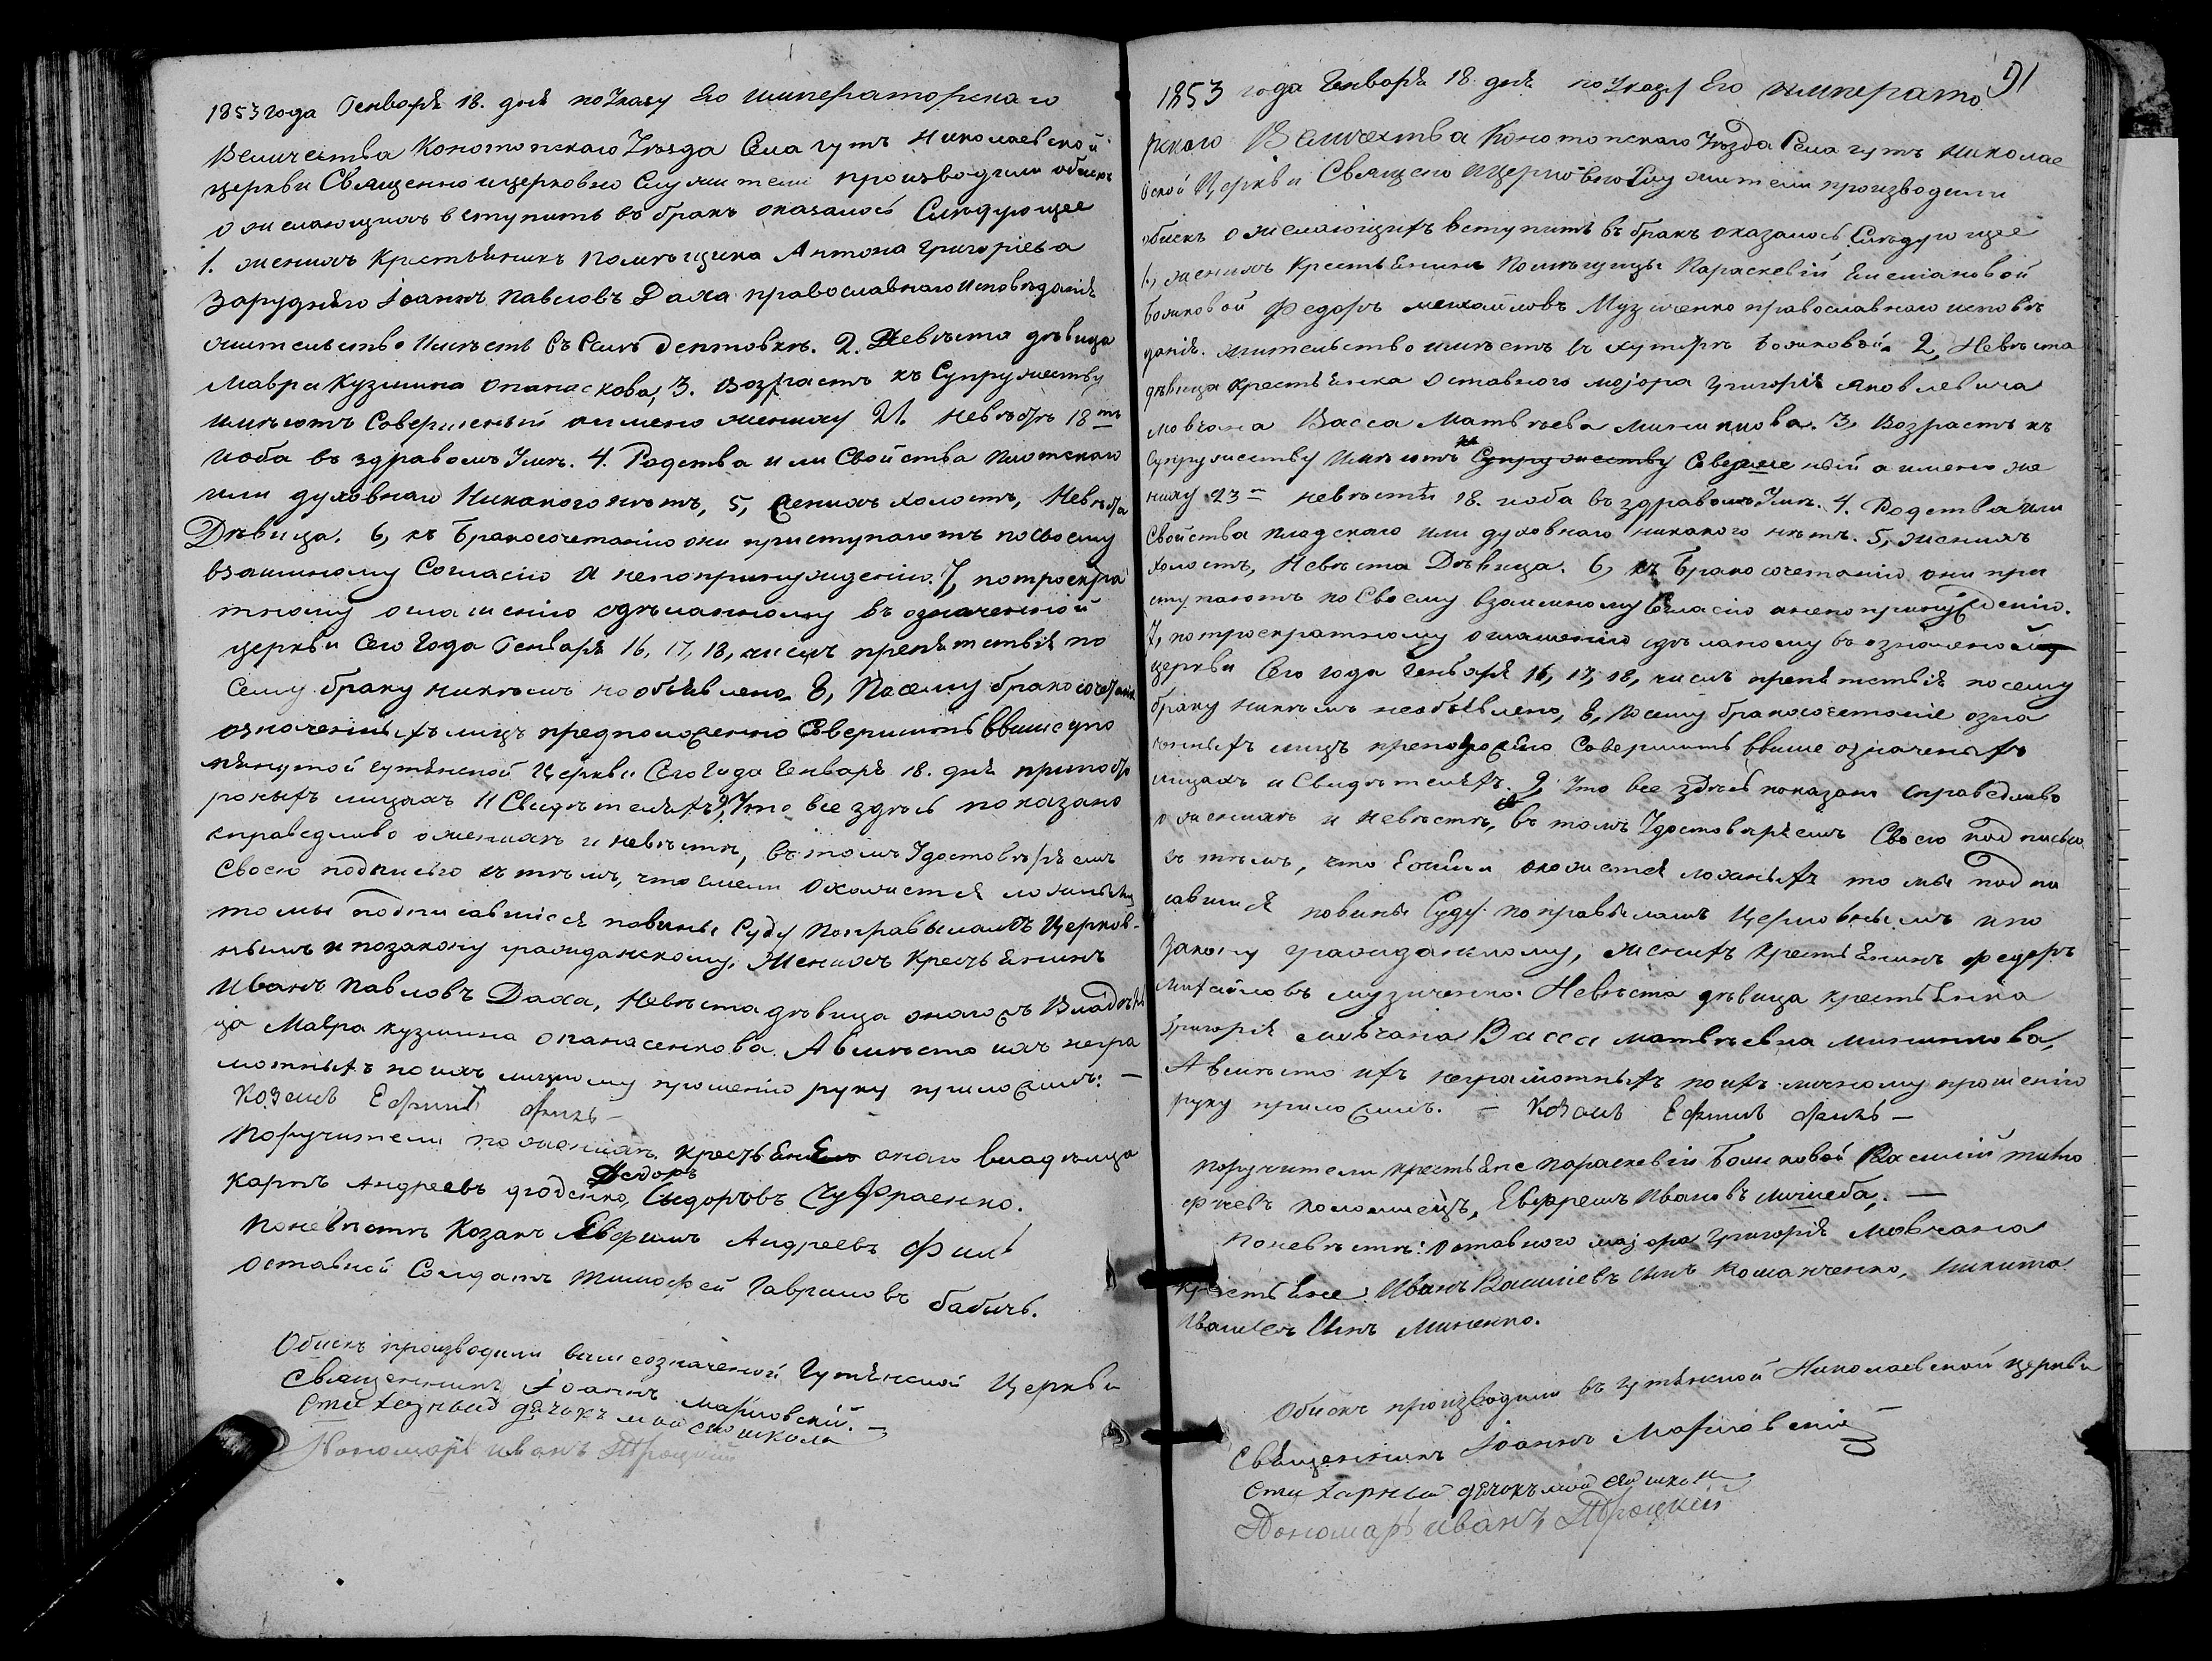 1853 года Генваря 18. дня по Указу Его Императорскаго
Величества Конотопскаго Уѣзда Села гутъ Николаевской
церкви Священно ицерковно Служители производили обыскъ
о желающихъ вступить въ бракъ оказалось Слѣдующее
1. женихъ Крестьянинъ помѣщика Антона григоріева
Заруднѣго Іоаннъ Павловъ Даха православнаго исповѣданія
жительство Имѣетъ въ Селѣ Дептовкѣ. 2. Невѣста дѣвица
Мавра Кузмина Опанаскова, 3. Возрастъ къ Супружеству
имѣютъ Совершеный аимено жениху 21. невѣстѣ 18тъ
иоба въ здравомъ Умѣ. 4. Родства или Свойства плотскаго
или духовнаго Никакого нѣтъ, 5, женихъ холостъ, Невѣста
Дѣвица. 6, къ Бракосочетанію они приступаютъ посвоему
взаимному Согласію а непопринужденію. 7, потроекра
тному оглашенію сдѣланному въ означенной
церкви Сего Года Генваря 16, 17, 18, числъ препятствія по
Сему браку никѣмъ необъявлено. 8, Посему бракосочетаніе
означеныхъ лицъ предположенно Совершить ввишеупо
мянутой гутянской Церкви Сего Года Генваря 18. дня припосто
роныхъ лицахъ И Свидѣтеляхъ. 9, Что все здѣсь показано
справедливо оженихѣ и невѣстѣ, въ томъ Удостовѣряемъ
Своею подписью съ тѣмъ, что
томы подписавшіеся повины Суду поправыламъ Церков-
нымъ ипозакону гражданскому. Женихъ Крестьянинъ
Иванъ Павловъ Даха, Невѣста дѣвица оногожъ Владѣль
ца Мавра кузмина Опанасенкова. Авмѣсто ихъ негра
мотныхъ поихъ личному прошенію руку приложилъ: —
Козакъ Ефимъ Филь —
Поручители поженихѣ крестьяне оного владѣльца
Федоръ
Карпъ Андреевъ дюденко, Сидоровъ Суфраенко.
Поневѣстѣ Козакъ Евфимъ Андреевъ Филь
Оставной Солдатъ Тимофей Гавриловъ бабичъ.
Обискъ производили вишеозначеной Гутянской Церкви
Священникъ Іоаннъ Марковскій. —
Стихарный дячокъ школа
Пономарь иванъ Троцкий
91
1853 года Генваря 18 дня по Указу Его Императо
рскаго Величества Конотопскаго Уѣзда Села гутъ Николае
вской Церкви Священо ицерковно Служители производили
обискъ о желающихъ вступить въ бракъ оказалось Слѣдующее
1, женихъ Крестьянинъ Помѣщицы Параскевіи
Божковой Федоръ михайловъ Музиченко православнаго исповѣ
данія. жительство имѣетъ въ хуторѣ Божковой. 2, Невѣста
дѣвица крестьянка Оставного маіора Григорія яковлевича
мовчана Васса Матвѣева . 3, Возрастъ къ
Супружеству имѣютъ Супружеству Совершеный аимено же
ниху 23 невѣстѣ 18. иоба въ здравомъ Умѣ. 4. Родства или
Свойства плодскаго или духовнаго никакого нѣтъ. 5, женихъ
холостъ, Невѣста Дѣвица. 6, къ Бракосочетанію они при
ступаютъ по Своему взаимному Согласію анепопринужденію.
7, потроекратному оглашенію сдѣланому въ означеной
церкви Сего года Генваря 16, 17, 18, числъ препятствія посему
браку никѣмъ необъявлено, 8, посему бракосочетаніе озна
ченыхъ лицъ Совершить ввише означеныхъ
лицахъ и Свидѣтеляхъ. 9, Что все здѣсь показано справедливо
о женихѣ и невѣстѣ, въ томъ Удостовѣряемъ Своею подписью
съ тѣмъ, что то мы подпи
савшися повины Суду поправыламъ Церковнымъ ипо
Закону гражданскому, женихъ крестьянинъ федоръ
михайловъ музиченко Невѣста дѣвица крестьянка
григорія мовчана Васса матвѣевна ,
Авмѣсто ихъ неграмотныхъ поихъ личному прошенію
руку приложилъ. — Козакъ Ефимъ Филь —
Поручители крестьяне параскевіи Божковой Василій
коломиецъ, Евфремъ Ивановъ . —
Поневѣстѣ: Оставного маіора григорія Мовчана
Крестьяне: Иванъ Василіевъ Сынъ Романченко, Никита
Сынъ Миненко.
Обискъ производили въ гутянской Николаевской церкви
Священникъ Іоаннъ Марковскій
Стихарный дячокъ школа
Пономарь иванъ Троцкий